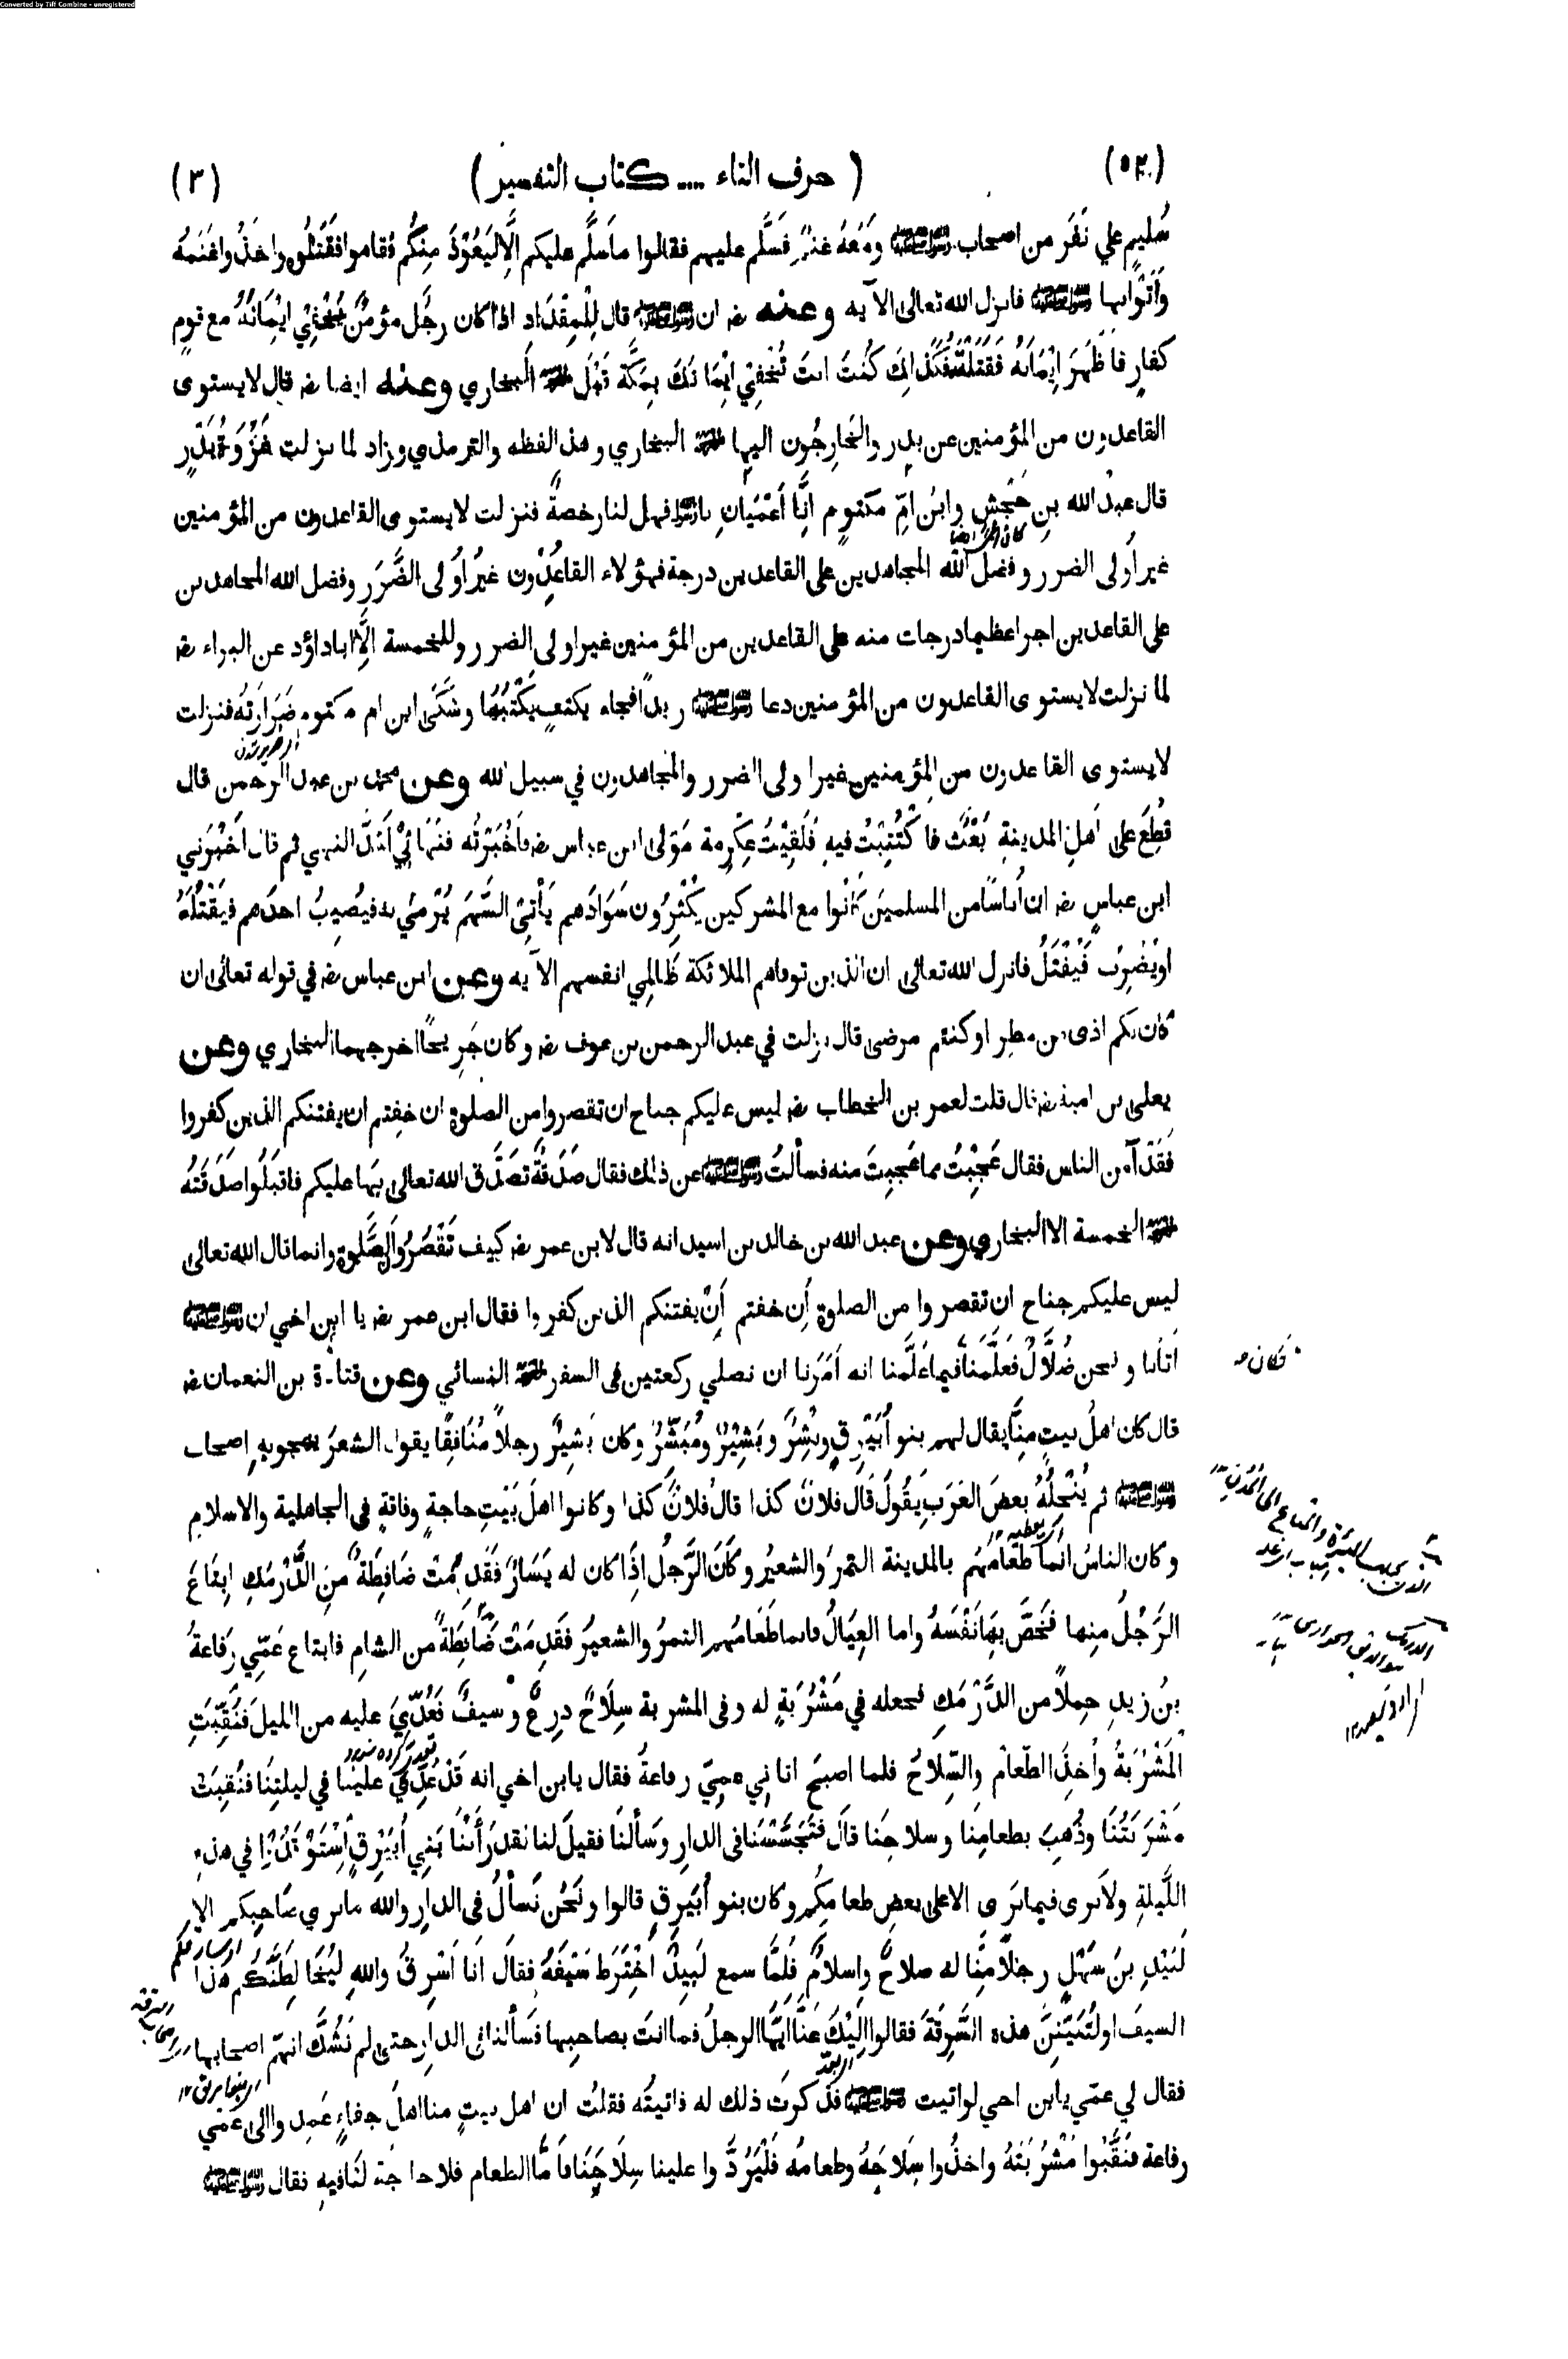 Converted by Tiff Combine - unregistered
(٥٢٠) ( حرف التاء .... كتاب التفسير ) (٣)
سُليمٍ علي نَفَر من اصحاب رسول الله صلى الله عليه وسلم ومَعَهُ غنمٌ فَسَلَّم عليهم فقالوا ماسَلَّم عليكم الَّا لِيَعُوْذَ مِنكُم فقاموا فقَتَلُوه واخَذُوا غَنَمَهُ
وَاَتَوْا بها رسول الله صلى الله عليه وسلم فانزل الله تعالى الآيه وعنه رض ان رسول الله صلى الله عليه وسلم قال لِلْمِقدَادِ اذا كان رجُل مؤمنٌ يُخفِيْ ايْمَانَهُ مع قومٍ
كفارٍ فاَظْهَرَ اِيْمَانَهُ فَقَتَلتَهُ فكَذٰلِكَ كُنْتَ انتَ تُخْفِيْ اِيْمَانَكَ بِمَكَّةَ قَبْلُ اخرجه البخاري وعنه ايضا رض قال لا يستوى
القاعدون من المؤمنين عن بدرٍ والخارِجُون اليها اخرجه البخاري وهذا لفظه والترمذي وزاد لما نزلت غَزْوَةُ بَدْرٍ
قال عبدُ الله بنِ جَحْشٍ وابنُ اُمِّ مكتومٍ اِنَّا اَعْمَيَانِ يا رسول الله فهل لنا رخصةٌ فنزلت لا يستوى القاعدون من المؤمنين
غيرُ اُولى الضرر وفضل الله المجاهدين على القاعدين درجة فهؤلاء القاعدُون غيرُ اُولى الضَّرَرِ وفضل الله المجاهدين
على القاعدين اجرا عظيما درجات منه على القاعدين من المؤمنين غير اولى الضرر وللخمسة اِلَّا اباداؤد عن البراء رض
لما نزلت لا يستوى القاعدون من المؤمنين دعا رسول الله صلى الله عليه وسلم زيداً فجاء بكتفٍ يَكْتُبُهَا وشَكٰى ابن ام مكتوم ضَرَارَتَهُ فنزلت
لا يستوى القاعدون من المؤمنين غير اولى الضرر والمجاهدون في سبيل الله وعن محمد بن عبد الرحمن قال
قُطِعَ على اَهلِ المدينةِ بَعْثٌ فاكْتُتِبْتُ فيهِ فَلَقِيْتُ عِكْرِمة مَوْلى ابن عباس رض فاَخْبَرْتُه فنَهَانِيْ اَشَدَّ النهي ثم قال اَخْبَرَني
ابن عباسٍ رض ان اُناسًا من المسلمينَ كَانُوا مع المشركين يُكْثِرُون سَوَادَهم يَأْتِى السَّهمُ يُرْمٰى به فيُصِيبُ احدَهم فيَقْتُلُهُ
او يُضْرَبُ فَيُقْتَلُ فانزل الله تعالى ان الذين توفاهم الملائكة ظَالِمِي انفسهم الآيه وعن ابن عباس رض في قوله تعالى ان
كان بكم اذى من مطر او كنتم مرضى قال نزلت في عبد الرحمن بن عوف رض وكان جَرِيحًا اخرجهما البخاري وعن
يعلى بن امية رض قال قلت لعمر بن الخطاب رض ليس عليكم جناح ان تقصروا من الصلوة ان خفتم ان يفتنكم الذين كفروا
فَقَد آمن الناس فقال عَجِبْتُ مما عَجِبتَ منه فسألتُ رسول الله صلى الله عليه وسلم عن ذلك فقال صَدَقةٌ تصَدَّق الله تعالى بِهَا عليكم فاقبَلُوا صَدَقَتَه
اخرجه الخمسة الا البخاري وعن عبد الله بن خالد بن اسيد انه قال لابن عمر رض كيف تَقصُرُوا الصَّلوة وانما قال الله تعالى
ليس عليكم جناح ان تقصروا من الصلوة اِن خفتم اَنْ يفتنكم الذين كفروا فقال ابن عمر رض يا ابن اخي ان رسول الله صلى الله عليه وسلم
اتانا ونحن ضُلَّالٌ فَعَلَّمَنَا فيما عَلَّمنا انه اَمَرَنا ان نصلي ركعتين في السفر اخرجه النسائي وعن قتادة بن النعمان رض
فكان
قال كان اهلُ بيتٍ مِنَّا يقال لهم بنو اُبَيْرِقٍ وبِشْرٌ وبَشِيْرٌ ومُبَشِّرٌ وكان بَشِيرٌ رجلاً مُنَافِقًا يقول الشعرَ يهجو به اصحاب
رسول الله صلى الله عليه وسلم ثم يُنْحِلُهُ بعضَ العَرَبِ يَقُولُ قَال فلانٌ كذا قال فلانٌ كذا وكانوا اهلَ بَيْتِ حاجةٍ وفاقةٍ في الجاهلية والاسلامِ
وكان الناسُ انما طعَامُهُم بالمدينة التمرُ والشعيرُ وكَانَ الرَّجلُ اِذَا كان له يَسَارٌ فَقَدِمَتْ ضَافِطَةٌ مِنَ الدَّرْمَكِ ابتَاعَ
الرَّجُلُ مِنها فَخَصَّ بِهَا نَفْسَهُ واما العِيَالُ فانما طَعَامُهم التمرُ والشعيرُ فقَدِمَتْ ضَافِطَةٌ من الشامِ فابتاع عَمِّي رفاعةُ
بنُ زيدٍ حِملاً من الدَّرْمَكِ فجعله في مَشْرُبَةٍ له وفى المشربة سِلاحٌ دِرعٌ وسيفٌ فَعُدِّيَ عليه من الليل فَنُقِّبَتِ
المَشْرُبَةُ واُخِذَ الطعامُ والسِّلاحُ فلما اصبحَ اتانِي عمِّيْ رفاعةُ فقال يا بن اخي انه قد عُدِّيَ علينا في ليلتِنَا فنُقِبَتْ
مَشْرَبَتُنَا وذُهِبَ بطعامِنَا وسلاحِنا قال فتَجَسَّسْنَا فى الدارِ وسَألنَا فقيلَ لنا لقد رَأَيْنَا بَنِي اُبَيْرِقٍ اسْتَوْقَدُوْا في هذه
اللَّيلةِ ولا نَرى فيما نَرى الا على بعضِ طعامِكُم وكان بنو اُبَيرِقٍ قالوا ونَحْن نَسأَلُ فى الدارِ والله ما نرى صَاحِبكم الا
لَبِيْدَ بنَ سَهْلٍ رجلاً مِنَّا له صلاحٌ واِسلامٌ فَلَمَّا سمع لَبِيدٌ اخْتَرَطَ سَيْفَهُ فقال اَنا اَسْرِقُ واللهِ لَيُخَالِطَنَّكُم هٰذا
السيفُ او لَتُبَيِّنُنَّ هذه السَّرِقَةَ فقالوا اِلَيْكَ عَنَّا ايُّها الرجلُ فما انتَ بصاحِبِها فسَألنا فى الدارِ حتى لم نَشُكَّ انهم اصحابها
فقال لي عمّي يا بن اخي لو اتيت رسول الله صلى الله عليه وسلم فذكرتَ ذلك له فاتيتُه فقلتُ ان اهل بيتٍ منا اهلَ جفاءٍ عَمِدوا الى عَمِّي
رفاعة فنَقَّبُوا مَشْرُبَتَهُ واخذُوا سِلَاحَهُ وطعامَه فَلْيَرُدُّوا علينا سِلَاحَنَا فاَمَّا الطعام فلا حاجَةَ لَنَا فيهِ فقال رسول الله صلى الله عليه وسلم